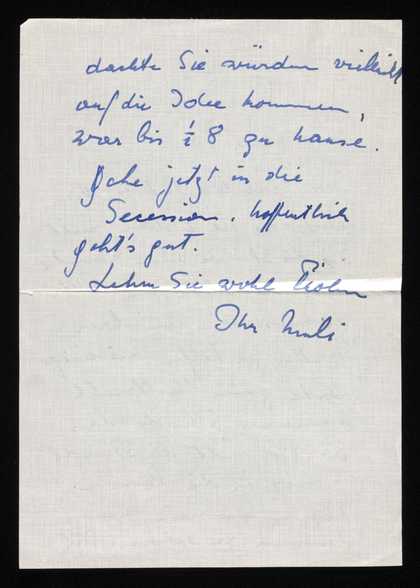 dachte Sie würden vielleicht
auf die Idee kommen,
war bis ½ 8 zu hause.
Gehe jetzt in die
Secession. hoffentlich
geht's gut.
Leben Sie wohl
Ihr